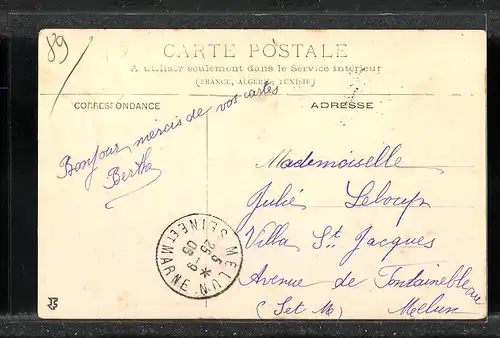 89
CARTE POSTALE
A utiliser seulement dans le Service intérieur
(FRANCE, ALGERIE, TUNISIE)
CORRESPONDANCE
ADRESSE
Bonjour mercis de vos cartes
Bertha
Mademoiselle
Julie Leloup
Villa St Jacques
Avenue de Fontainebleau
(Set M) Melun
MELUN
SEINE ET MARNE
5
25 - 9
05